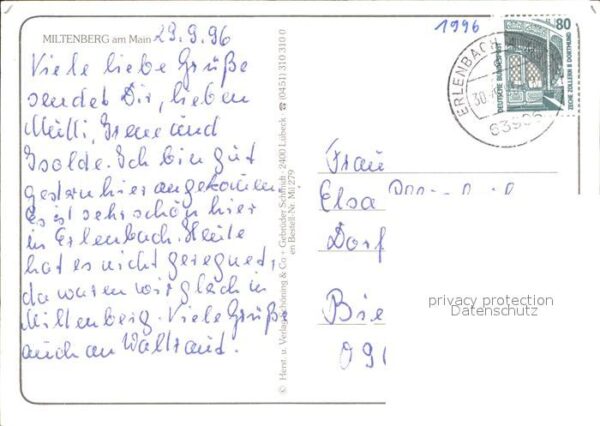 MILTENBERG am Main 29.9.96
Viele liebe Grüße
sendet Dir, lieben
Mutti, Irene und
Isolde. Ich bin gut
gestern hier angekommen
Es ist sehr schön hier
in Erlenbach. Heute
hat es nicht geregnet,
da waren wir gleich in
Miltenberg. Viele Grüße
auch an Waltraud.
© Herst. u. Verlag Schöning & Co + Gebrüder Schmidt · 2400 Lübeck ☎ (0451) 310 310 0
en Bestell-Nr. Mil 279
1996
80
DEUTSCHE BUNDESPOST
ZECHE ZOLLERN II DORTMUND
ERLENBACH
30.
Frau
Elsa
Dorf
Bie
096
privacy protection
Datenschutz